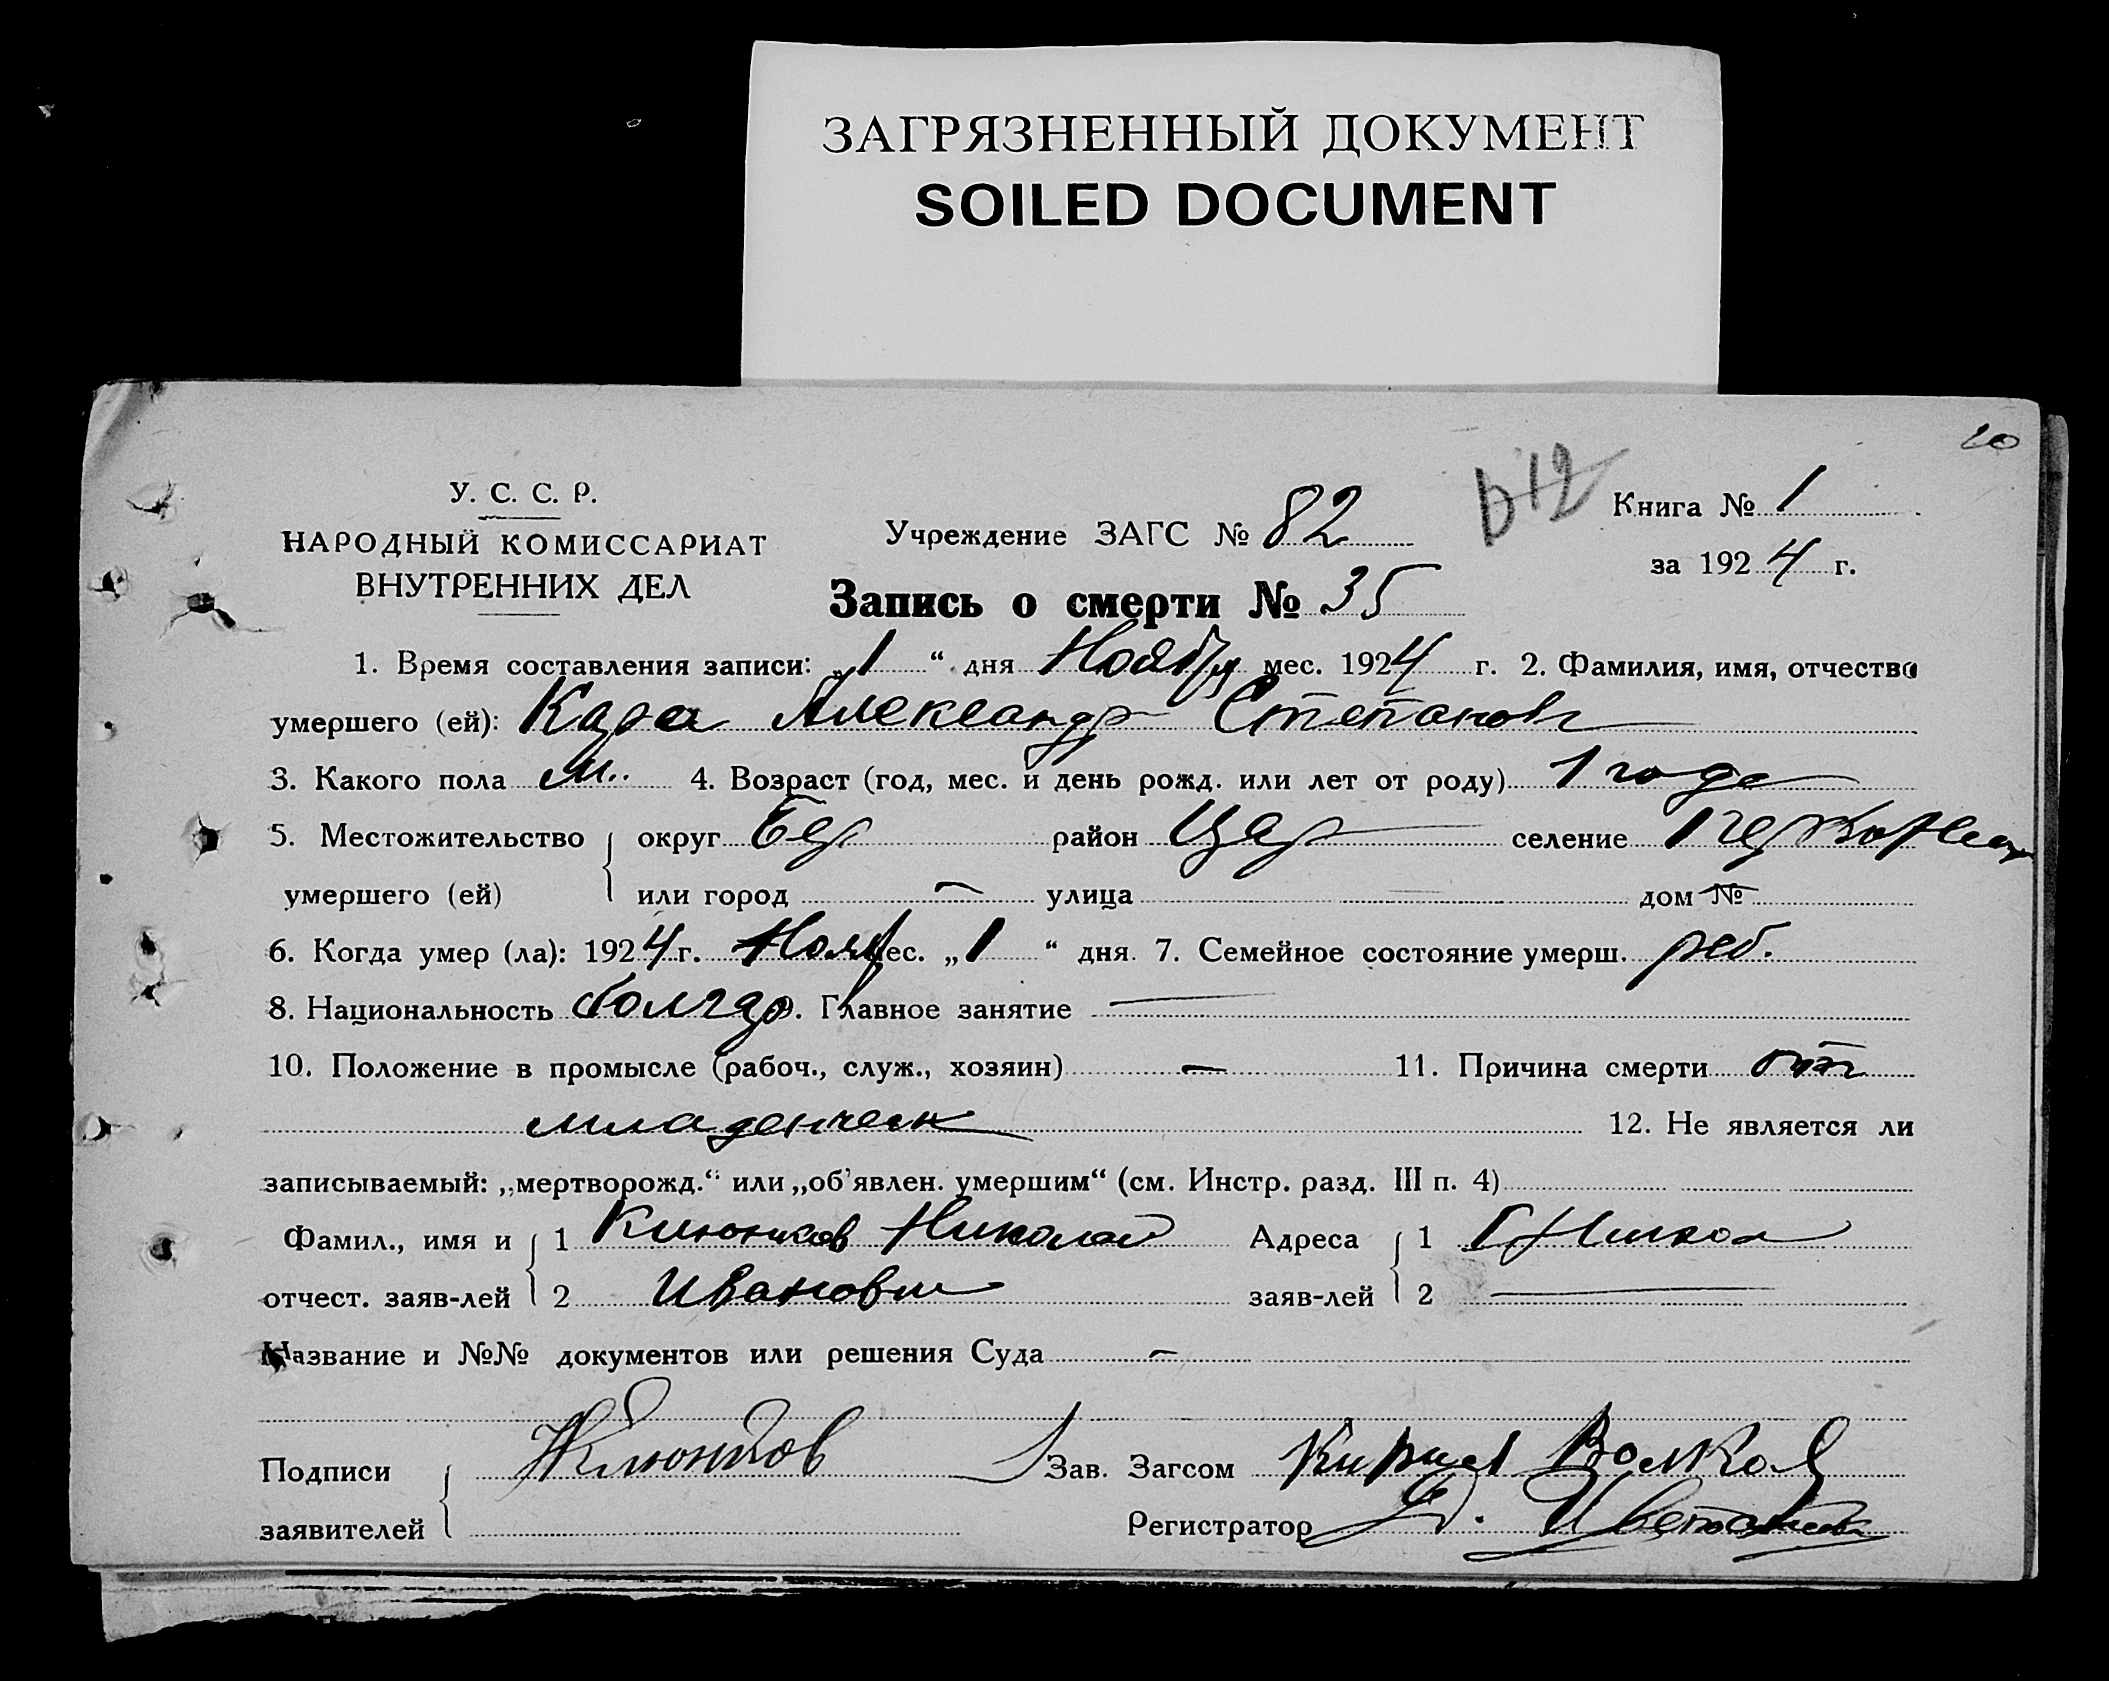 ЗАГРЯЗНЕННЫЙ ДОКУМЕНТ
SOILED DOCUMENT
20
У. С. С. Р.
НАРОДНЫЙ КОМИССАРИАТ
ВНУТРЕННИХ ДЕЛ
Учреждение ЗАГС № 82
Книга № 1
за 1924 г.
Запись о смерти № 35
1. Время составления записи: „1“ дня Ноября мес. 1924 г. 2. Фамилия, имя, отчество
умершего (ей): Кара Александр Степанов
3. Какого пола м.. 4. Возраст (год, мес. и день рожд. или лет от роду) 1 года
5. Местожительство округ район Цар селение
умершего (ей) или город — улица — дом №
6. Когда умер (ла): 1924 г. Нояб мес. „1“ дня. 7. Семейное состояние умерш. реб.
8. Национальность болгар 9. Главное занятие —
10. Положение в промысле (рабоч., служ., хозяин) — 11. Причина смерти от
младенческ 12. Не является ли
записываемый: „мертворожд.“ или „об'явлен. умершим“ (см. Инстр. разд. III п. 4)
Фамил., имя и 1 Николай Адреса 1
отчест. заяв-лей 2 Иванович заяв-лей 2 —
Название и №№ документов или решения Суда —
Подписи Зав. Загсом Кирил Волков
заявителей Регистратор